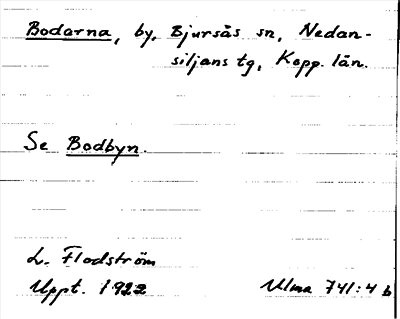 Bodarna, by, Bjursås sn, Nedan-
siljans tg, Kopp. län.
Se Bodbyn.
L. Flodström
Uppt. 1922
Ulma 741:4 b